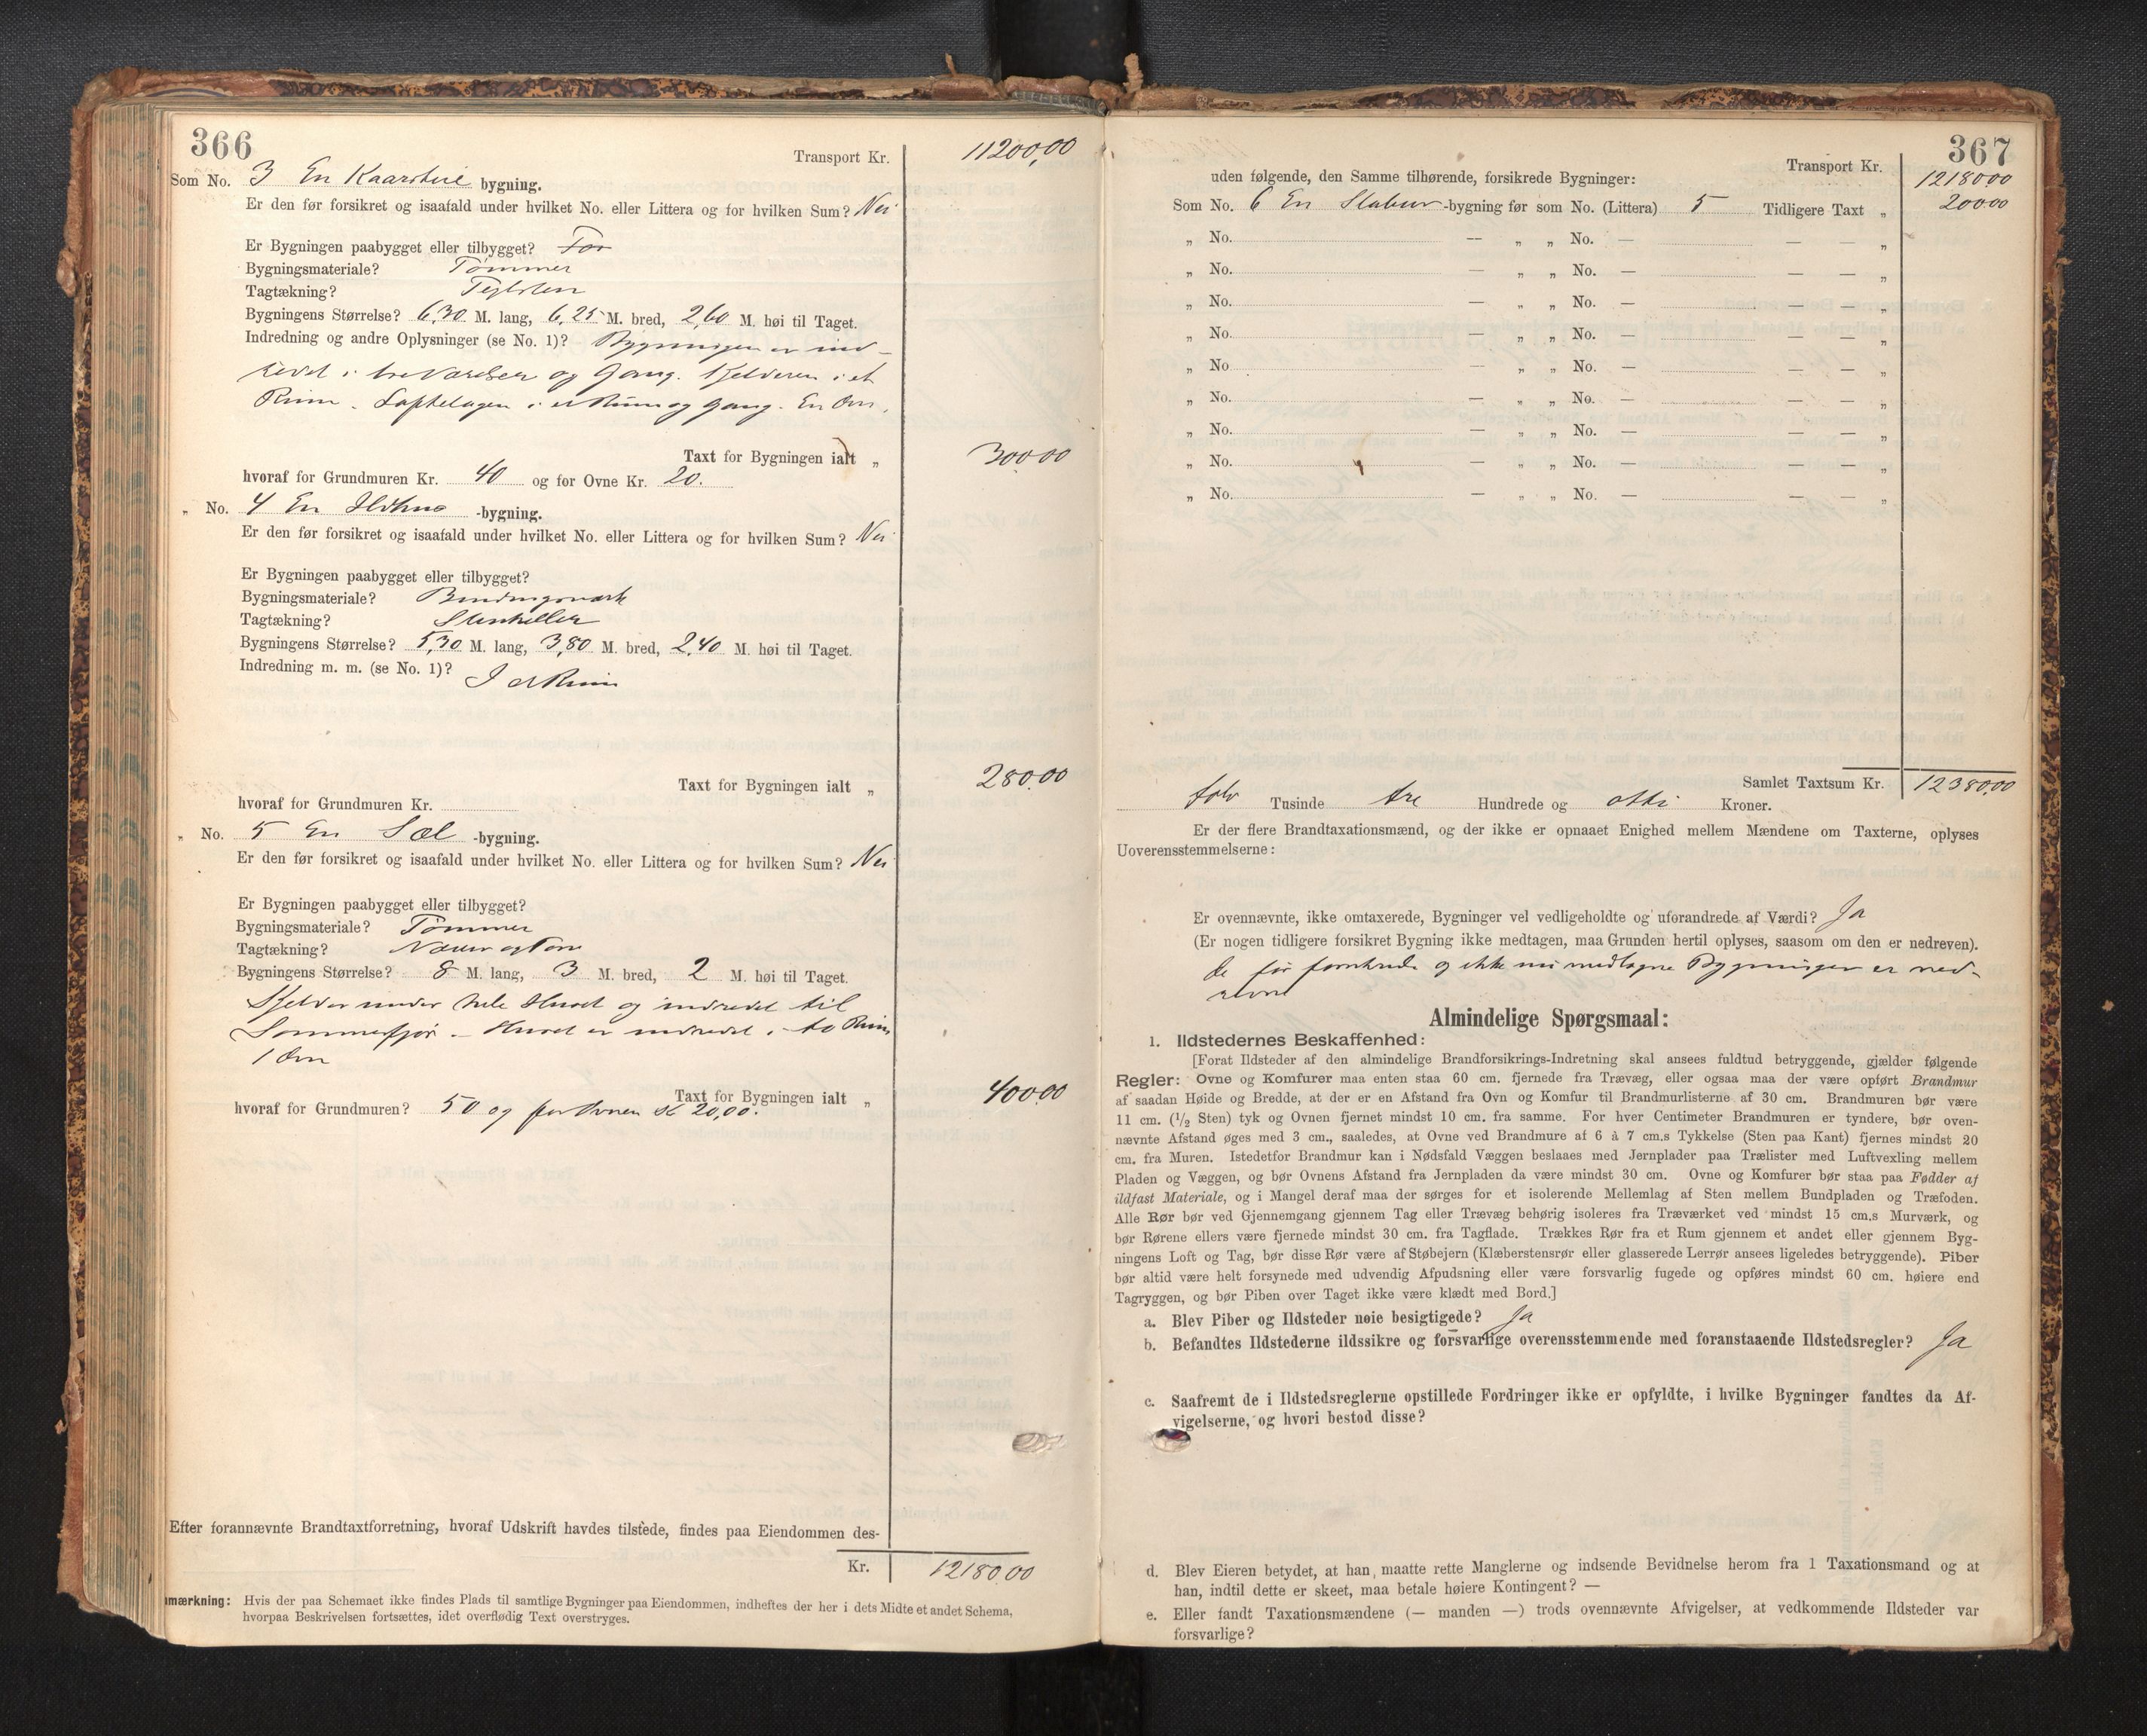 366
Transport Kr. 11200,00
Som No. 3 En Kaarstue bygning.
Er den før forsikret og isaafald under hvilket No. eller Littera og for hvilken Sum? Nei
Er Bygningen paabygget eller tilbygget?
Bygningsmateriale? Tømmer
Tagtækning? Teglsten
Bygningens Størrelse? 6,30 M. lang, 6,25 M. bred, 2,60 M. høi til Taget.
Indredning og andre Oplysninger (se No. 1)? Bygningen er ind-
redet i tre Værelser og Gang. Kjelderen i et
Rum. Loftetagen i et Rum og Gang. En Ovn.
Taxt for Bygningen ialt „ 300,00
hvoraf for Grundmuren Kr. 40 og for Ovne Kr. 20.
„ No. 4 En Ildhus -bygning.
Er den før forsikret og isaafald under hvilket No. eller Littera og for hvilken Sum? Nei
Er Bygningen paabygget eller tilbygget?
Bygningsmateriale? Bindingsværk
Tagtækning? Stenheller
Bygningens Størrelse? 5,30 M. lang, 3,80 M. bred, 2,40 M. høi til Taget.
Indredning m. m. (se No. 1)? I et Rum
Taxt for Bygningen ialt „ 280,00
hvoraf for Grundmuren Kr.
„ No. 5 En Sæl -bygning.
Er den før forsikret og isaafald under hvilket No. eller Littera og for hvilken Sum? Nei
Er Bygningen paabygget eller tilbygget?
Bygningsmateriale? Tømmer
Tagtækning? Næver og Torv
Bygningens Størrelse? 8 M. lang, 3 M. bred, 2 M. høi til Taget.
Kjelder under hele Huset og indredet til
Sommerfjøs. – Huset er indredet i to Rum
1 Ovn
Taxt for Bygningen ialt „ 400,00
hvoraf for Grundmuren? 50 og for Ovnen Kr 20,00.
Efter forannævnte Brandtaxtforretning, hvoraf Udskrift havdes tilstede, findes paa Eiendommen des-
Kr. 12180,00
mærkning: Hvis der paa Schemaet ikke findes Plads til samtlige Bygninger paa Eiendommen, indheftes der her i dets Midte et andet Schema,
hvorpaa Beskrivelsen fortsættes, idet overflødig Text overstryges.
367
Transport Kr. 12180,00
uden følgende, den Samme tilhørende, forsikrede Bygninger:
Som No. 6 En Stabur -bygning før som No. (Littera) 5 Tidligere Taxt „ 200,00
„ No. — „ „ No. — — — „
„ No. — „ „ No. — — — „
„ No. — „ „ No. — — — „
„ No. — „ „ No. — — — „
„ No. — „ „ No. — — — „
„ No. — „ „ No. — — — „
„ No. — „ „ No. — — — „
„ No. — „ „ No. — — — „
„ No. — „ „ No. — — — „
Samlet Taxtsum Kr. 12380,00
tolv Tusinde tre Hundrede og otti Kroner.
Er der flere Brandtaxationsmænd, og der ikke er opnaaet Enighed mellem Mændene om Taxterne, oplyses
Uoverensstemmelserne:
Er ovennævnte, ikke omtaxerede, Bygninger vel vedligeholdte og uforandrede af Værdi? Ja
(Er nogen tidligere forsikret Bygning ikke medtagen, maa Grunden hertil oplyses, saasom om den er nedreven).
de før forsikrede og ikke nu medtagne Bygninger er ned-
revne
Almindelige Spørgsmaal:
1. Ildstedernes Beskaffenhed:
[Forat Ildsteder af den almindelige Brandforsikrings-Indretning skal ansees fuldtud betryggende, gjælder følgende
Regler: Ovne og Komfurer maa enten staa 60 cm. fjernede fra Trævæg, eller ogsaa maa der være opført Brandmur
af saadan Høide og Bredde, at der er en Afstand fra Ovn og Komfur til Brandmurlisterne af 30 cm. Brandmuren bør være
11 cm. (1/2 Sten) tyk og Ovnen fjernet mindst 10 cm. fra samme. For hver Centimeter Brandmuren er tyndere, bør oven-
nævnte Afstand øges med 3 cm., saaledes, at Ovne ved Brandmure af 6 à 7 cm.s Tykkelse (Sten paa Kant) fjernes mindst 20
cm. fra Muren. Istedetfor Brandmur kan i Nødsfald Væggen beslaaes med Jernplader paa Trælister med Luftvexling mellem
Pladen og Væggen, og bør Ovnens Afstand fra Jernpladen da være mindst 30 cm. Ovne og Komfurer bør staa paa Fødder af
ildfast Materiale, og i Mangel deraf maa der sørges for et isolerende Mellemlag af Sten mellem Bundpladen og Træfoden.
Alle Rør bør ved Gjennemgang gjennem Tag eller Trævæg behørig isoleres fra Træværket ved mindst 15 cm.s Murværk, og
bør Rørene ellers være fjernede mindst 30 cm. fra Tagflade. Trækkes Rør fra et Rum gjennem et andet eller gjennem Byg-
ningens Loft og Tag, bør disse Rør være af Støbejern (Klæberstensrør eller glasserede Lerrør ansees ligeledes betryggende). Piber
bør altid være helt forsynede med udvendig Afpudsning eller være forsvarlig fugede og opføres mindst 60 cm. høiere end
Tagryggen, og bør Piben over Taget ikke være klædt med Bord.]
a. Blev Piber og Ildsteder nøie besigtigede? Ja
b. Befandtes Ildstederne ildssikre og forsvarlige overensstemmende med foranstaaende Ildstedsregler? Ja
c. Saafremt de i Ildstedsreglerne opstillede Fordringer ikke er opfyldte, i hvilke Bygninger fandtes da Af-
vigelserne, og hvori bestod disse?
d. Blev Eieren betydet, at han maatte rette Manglerne og indsende Bevidnelse herom fra 1 Taxationsmand og at
han, indtil dette er skeet, maa betale høiere Kontingent? —
e. Eller fandt Taxationsmændene (— manden —) trods ovennævnte Afvigelser, at vedkommende Ildsteder var
forsvarlige?